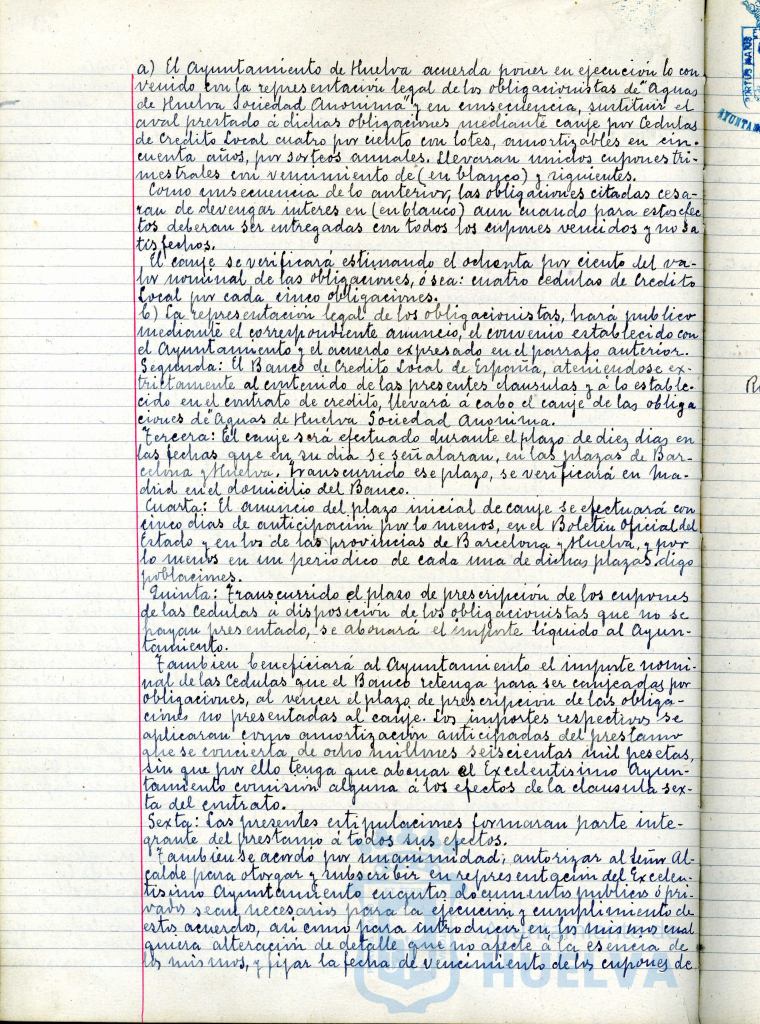 a) El Ayuntamiento de Huelva acuerda poner en ejecución lo con
venido con la representación legal de los obligacionistas de "Aguas
de Huelva Sociedad Anonima" y en consecuencia, sustituir el
aval prestado á dichas obligaciones mediante canje por Cedulas
de Credito Local cuatro por ciento con lotes, amortizables en cin-
cuenta años, por sorteos anuales. Llevaran unidos cupones tri-
mestrales con vencimiento de (en blanco) y siguientes.
Como consecuencia de lo anterior, las obligaciones citadas cesa-
ran de devengar interes en (en blanco) aun cuando para estos efec
tos deberan ser entregadas con todos los cupones vencidos y no sa
tisfechos.
El canje se verificará estimando el ochenta por ciento del va-
lor nominal de las obligaciones, ó sea: cuatro cedulas de Credito
Local por cada cinco obligaciones.
b) La representación legal de los obligacionistas, hará publico
mediante el correspondiente anuncio, el convenio establecido con
el Ayuntamiento y el acuerdo expresado en el parrafo anterior.
Segunda: El Banco de Credito Local de España, ateniendose ex-
trictamente al contenido de las presentes clausulas y á lo estable-
cido en el contrato de credito, llevará á cabo el canje de las obliga
ciones de "Aguas de Huelva Sociedad Anonima.
Tercera: El canje será efectuado durante el plazo de diez dias en
las fechas que en su dia se señalaran, en las plazas de Bar-
celona y Huelva. Transcurrido ese plazo, se verificará en Ma-
drid en el domicilio del Banco.
Cuarta: El anuncio del plazo inicial de canje se efectuará con
cinco dias de anticipación por lo menos, en el Boletin Oficial del
Estado y en los de las provincias de Barcelona y Huelva, y por
lo menos en un periodico de cada una de dichas plazas. digo
poblaciones.
Quinta: Transcurrido el plazo de prescripción de los cupones
de las Cedulas á disposición de los obligacionistas que no se
hayan presentado, se abonará el importe liquido al Ayun-
tamiento.
Tambien beneficiará al Ayuntamiento el importe nomi-
nal de las Cedulas que el Banco retenga para ser canjeadas por
obligaciones, al vencer el plazo de prescripcion de las obliga-
ciones no presentadas al canje. Los importes respectivos se
aplicaran como amortización anticipadas del prestamo
que se concierta, de ocho millones seiscientas mil pesetas,
sin que por ello tenga que abonar el Excelentisimo Ayun-
tamiento comision alguna á los efectos de la clausula sex-
ta del contrato.
Sexta: Las presentes estipulaciones formaran parte inte-
grante del prestamo á todos sus efectos.
Tambien se acordó por unanimidad, autorizar al Señor Al-
calde para otorgar y subscribir en representación del Excelen-
tisimo Ayuntamiento cuantos documentos publicos ó pri-
vados sean necesarios para la ejecucion y cumplimiento de
estos acuerdos, asi como para introducir en los mismos cual
quiera alteración de detalle que no afecte á la esencia de
los mismos, y fijar la fecha de vencimiento de los cupones de
HUELVA